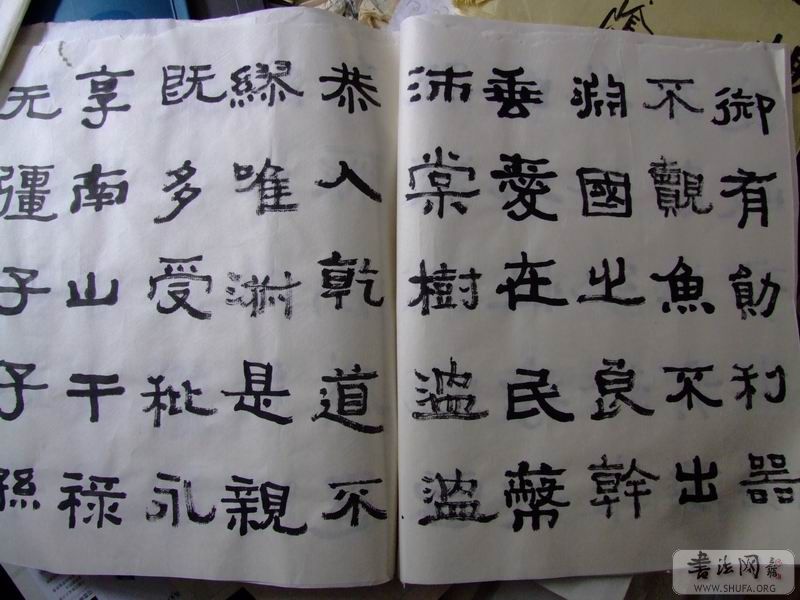 御有勛利器
不覿魚不出
淵國之良幹
垂愛在民蔽
沛棠樹溫溫
恭人乾道不
繆唯淑是親
既多受祉永
享南山干祿
无疆子子孫
书法网
WWW.SHUFA.ORG